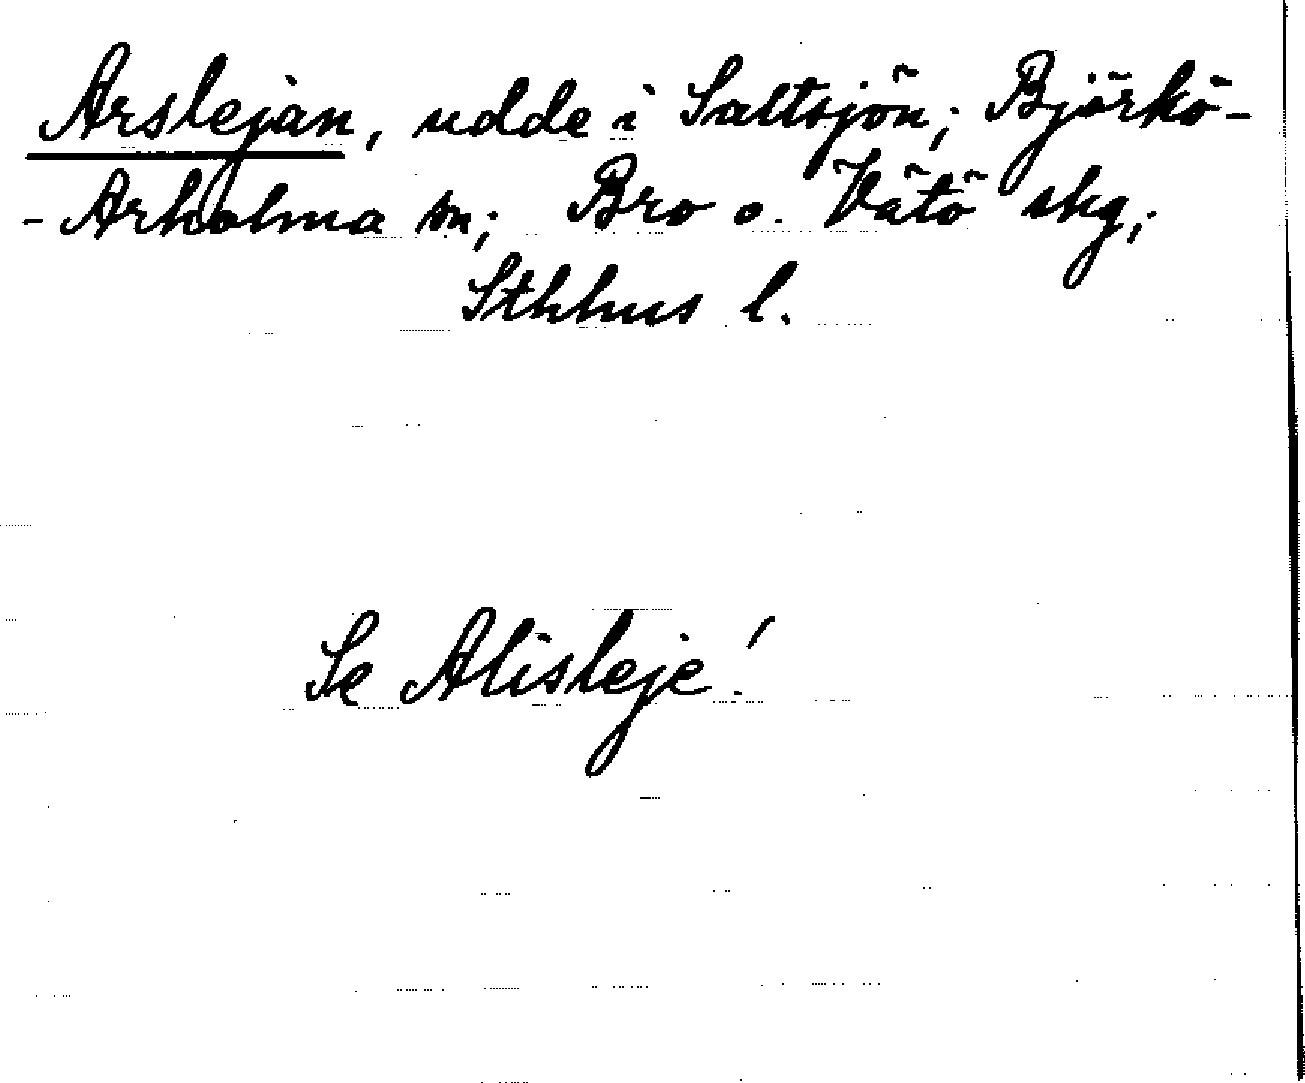 Arslejan, udde i Saltsjön; Björkö-
-Arholma sn; Bro o. Vätö skg,
Sthlms l.
Se Alisleje!